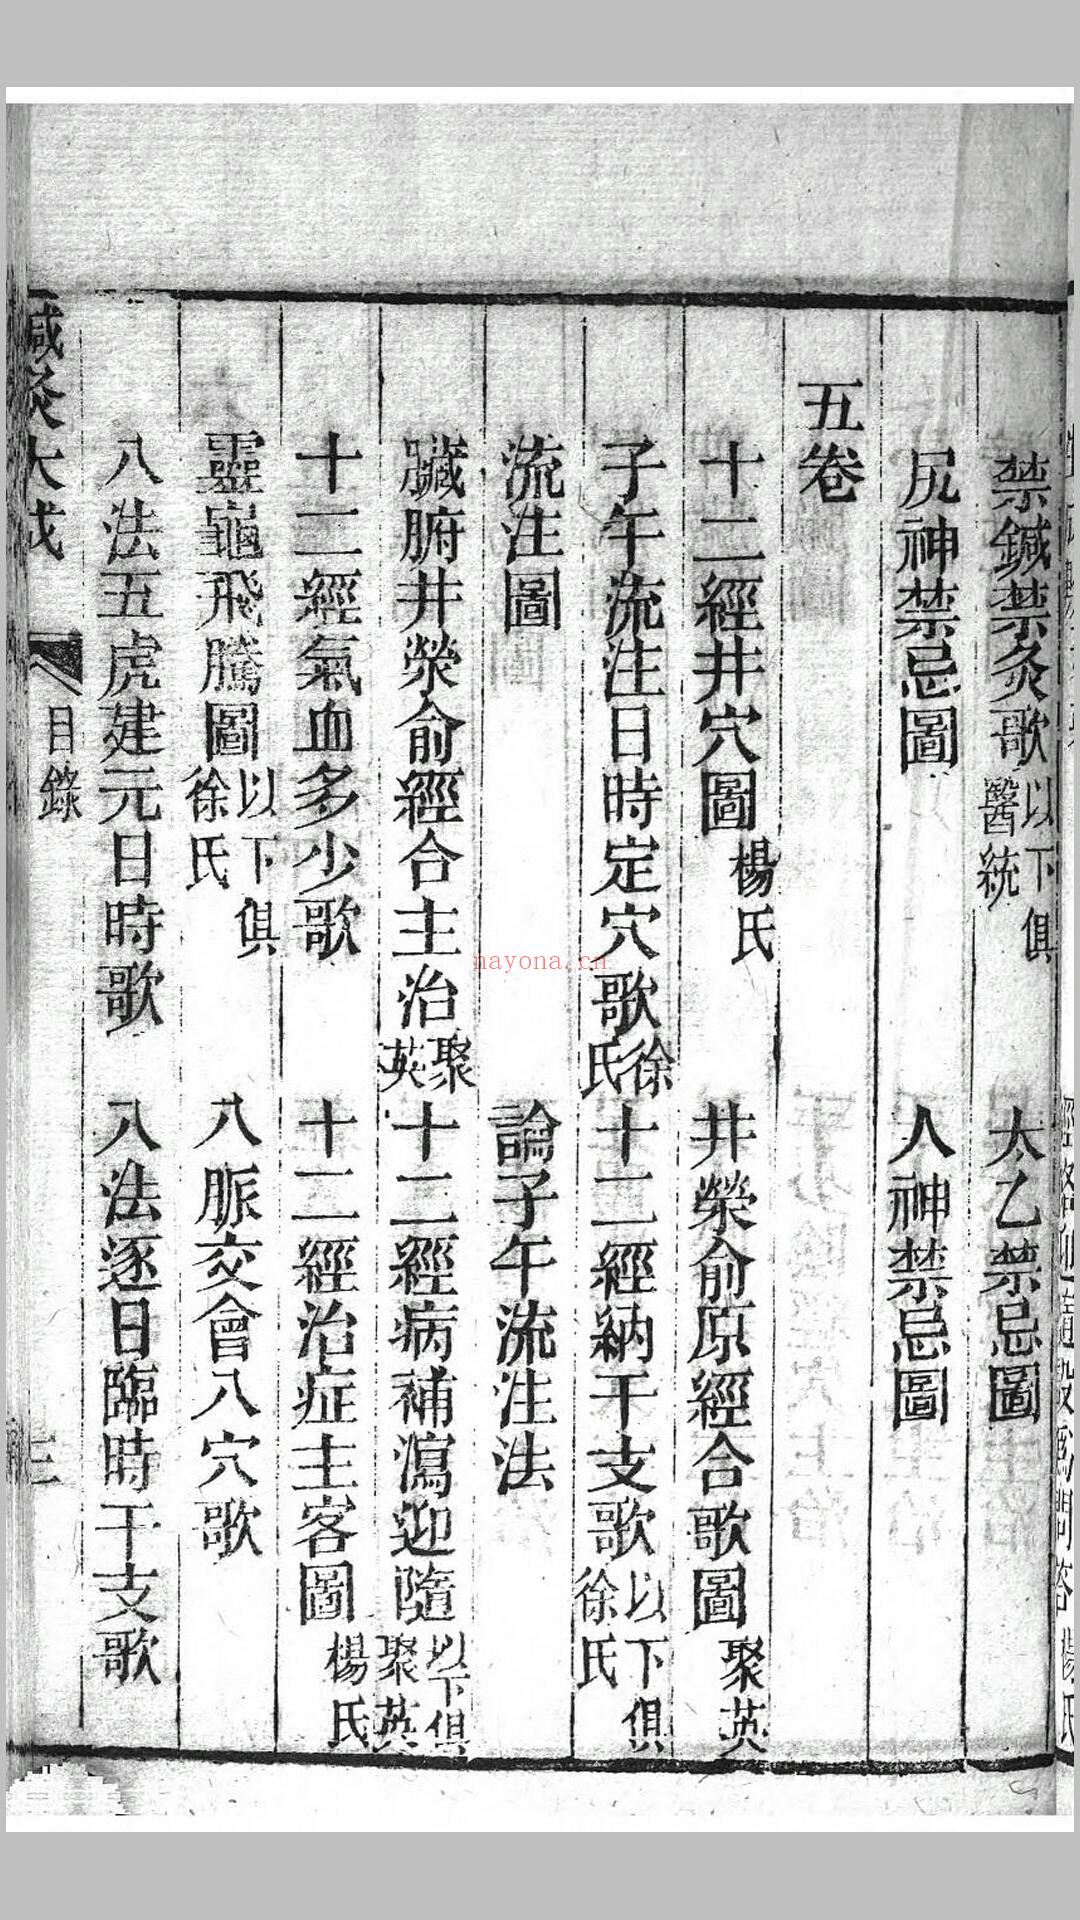 禁鍼禁灸歌以下俱醫統 太乙禁忌圖
尻神禁忌圖 人神禁忌圖
五卷
十二經井穴圖楊氏 井滎俞原經合歌圖聚英
子午流注日時定穴歌徐氏 十二經納干支歌以下俱徐氏
流注圖 論子午流注法
臟腑井滎俞經合主治聚英 十二經病補瀉迎隨以下俱聚英
十二經氣血多少歌 十二經治症主客圖楊氏
靈龜飛騰圖以下俱徐氏 八脈交會八穴歌
八法五虎建元日時歌 八法逐日臨時干支歌
鍼灸大成 目錄 三
nayona.cn